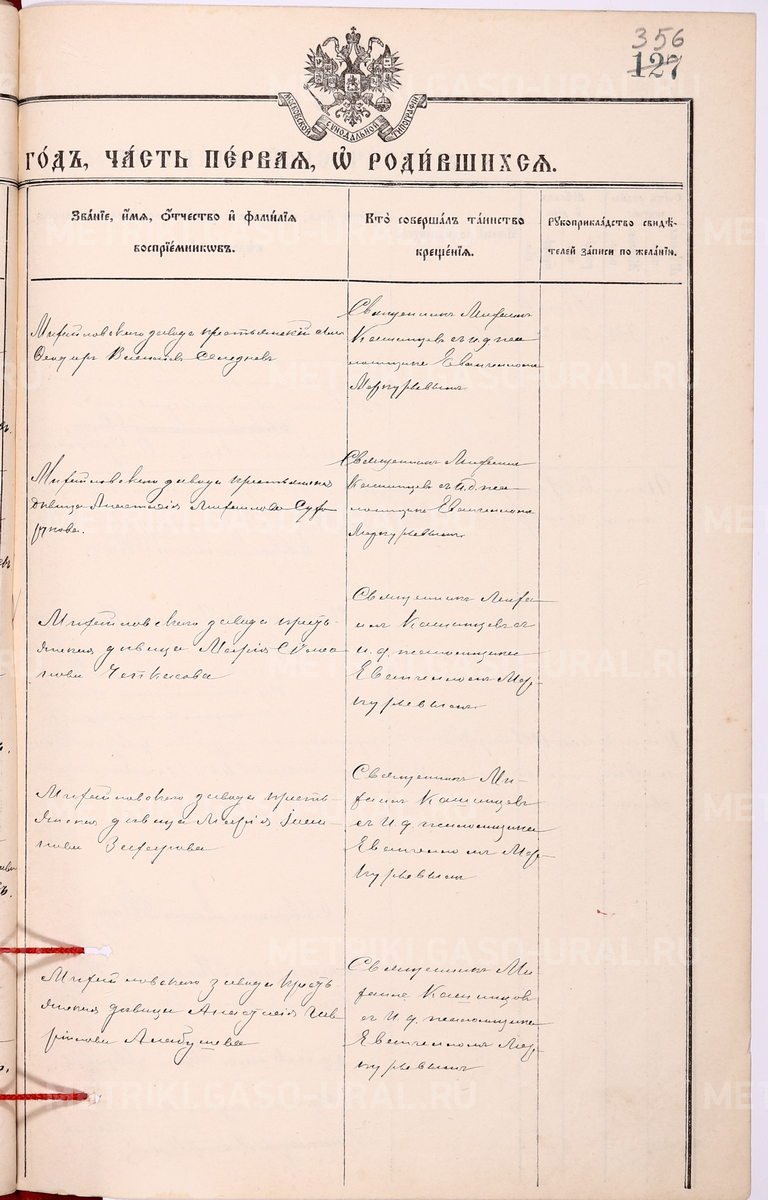 356
127
МОСКОВСКОЙ СѴНОДАЛЬНОЙ ТИПОГРАФІИ
ГО́ДЪ, ЧА́СТЬ ПЕ́РВАЯ, Ѽ РОДИ́ВШИХСЯ.
Зва́ніе, и́мя, ѻ́тчество и҆ фами́лія
воспріе́мникѡвъ.
Кто̀ соверша́лъ та́инство
креще́нія.
Рꙋкоприкла́дство свидѣ́-
телей за́писи по жела́нію.
Михайловскаго завода крестьянскій сынъ
Ѳеодоръ
Священникъ Михаилъ
Кашинцев съ и. д. пса
ломщика Евангеломъ
Меркурьевымъ
Михайловскаго завода крестьянская
дѣвица Анастасія Михайлова
Священникъ Михаилъ
Кашинцев съ и. д. пса
ломщика Евангеломъ
Меркурьевымъ.
Михайловскаго завода кресть-
янская дѣвица Марія
нова Черкасова
Священникъ Миха
илъ Кашинцевъ съ
и. д. псаломщика
Евангеломъ Мер-
курьевымъ.
Михайловскаго завода кресть-
янская дѣвица Марія
нова
Священникъ Ми-
хаилъ Кашинцевъ
съ и. д. псаломщика
Евангеломъ Мер-
курьевымъ
Михайловскаго завода кресть
янская дѣвица Анастасія Гав
рилова Алабушева
Священникъ Ми
хаилъ Кашинцов
съ и. д. псаломщика
Евангеломъ Мер-
курьевымъ
METRIKI.GASO-URAL.RU